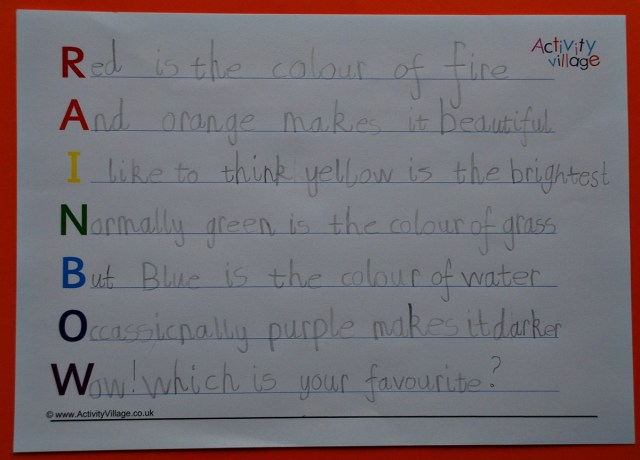 Activity
village
Red is the colour of fire
And orange makes it beautiful
I like to think yellow is the brightest
Normally green is the colour of grass
But Blue is the colour of water
Occassionally purple makes it darker
Wow! Which is your favourite?
© www.ActivityVillage.co.uk